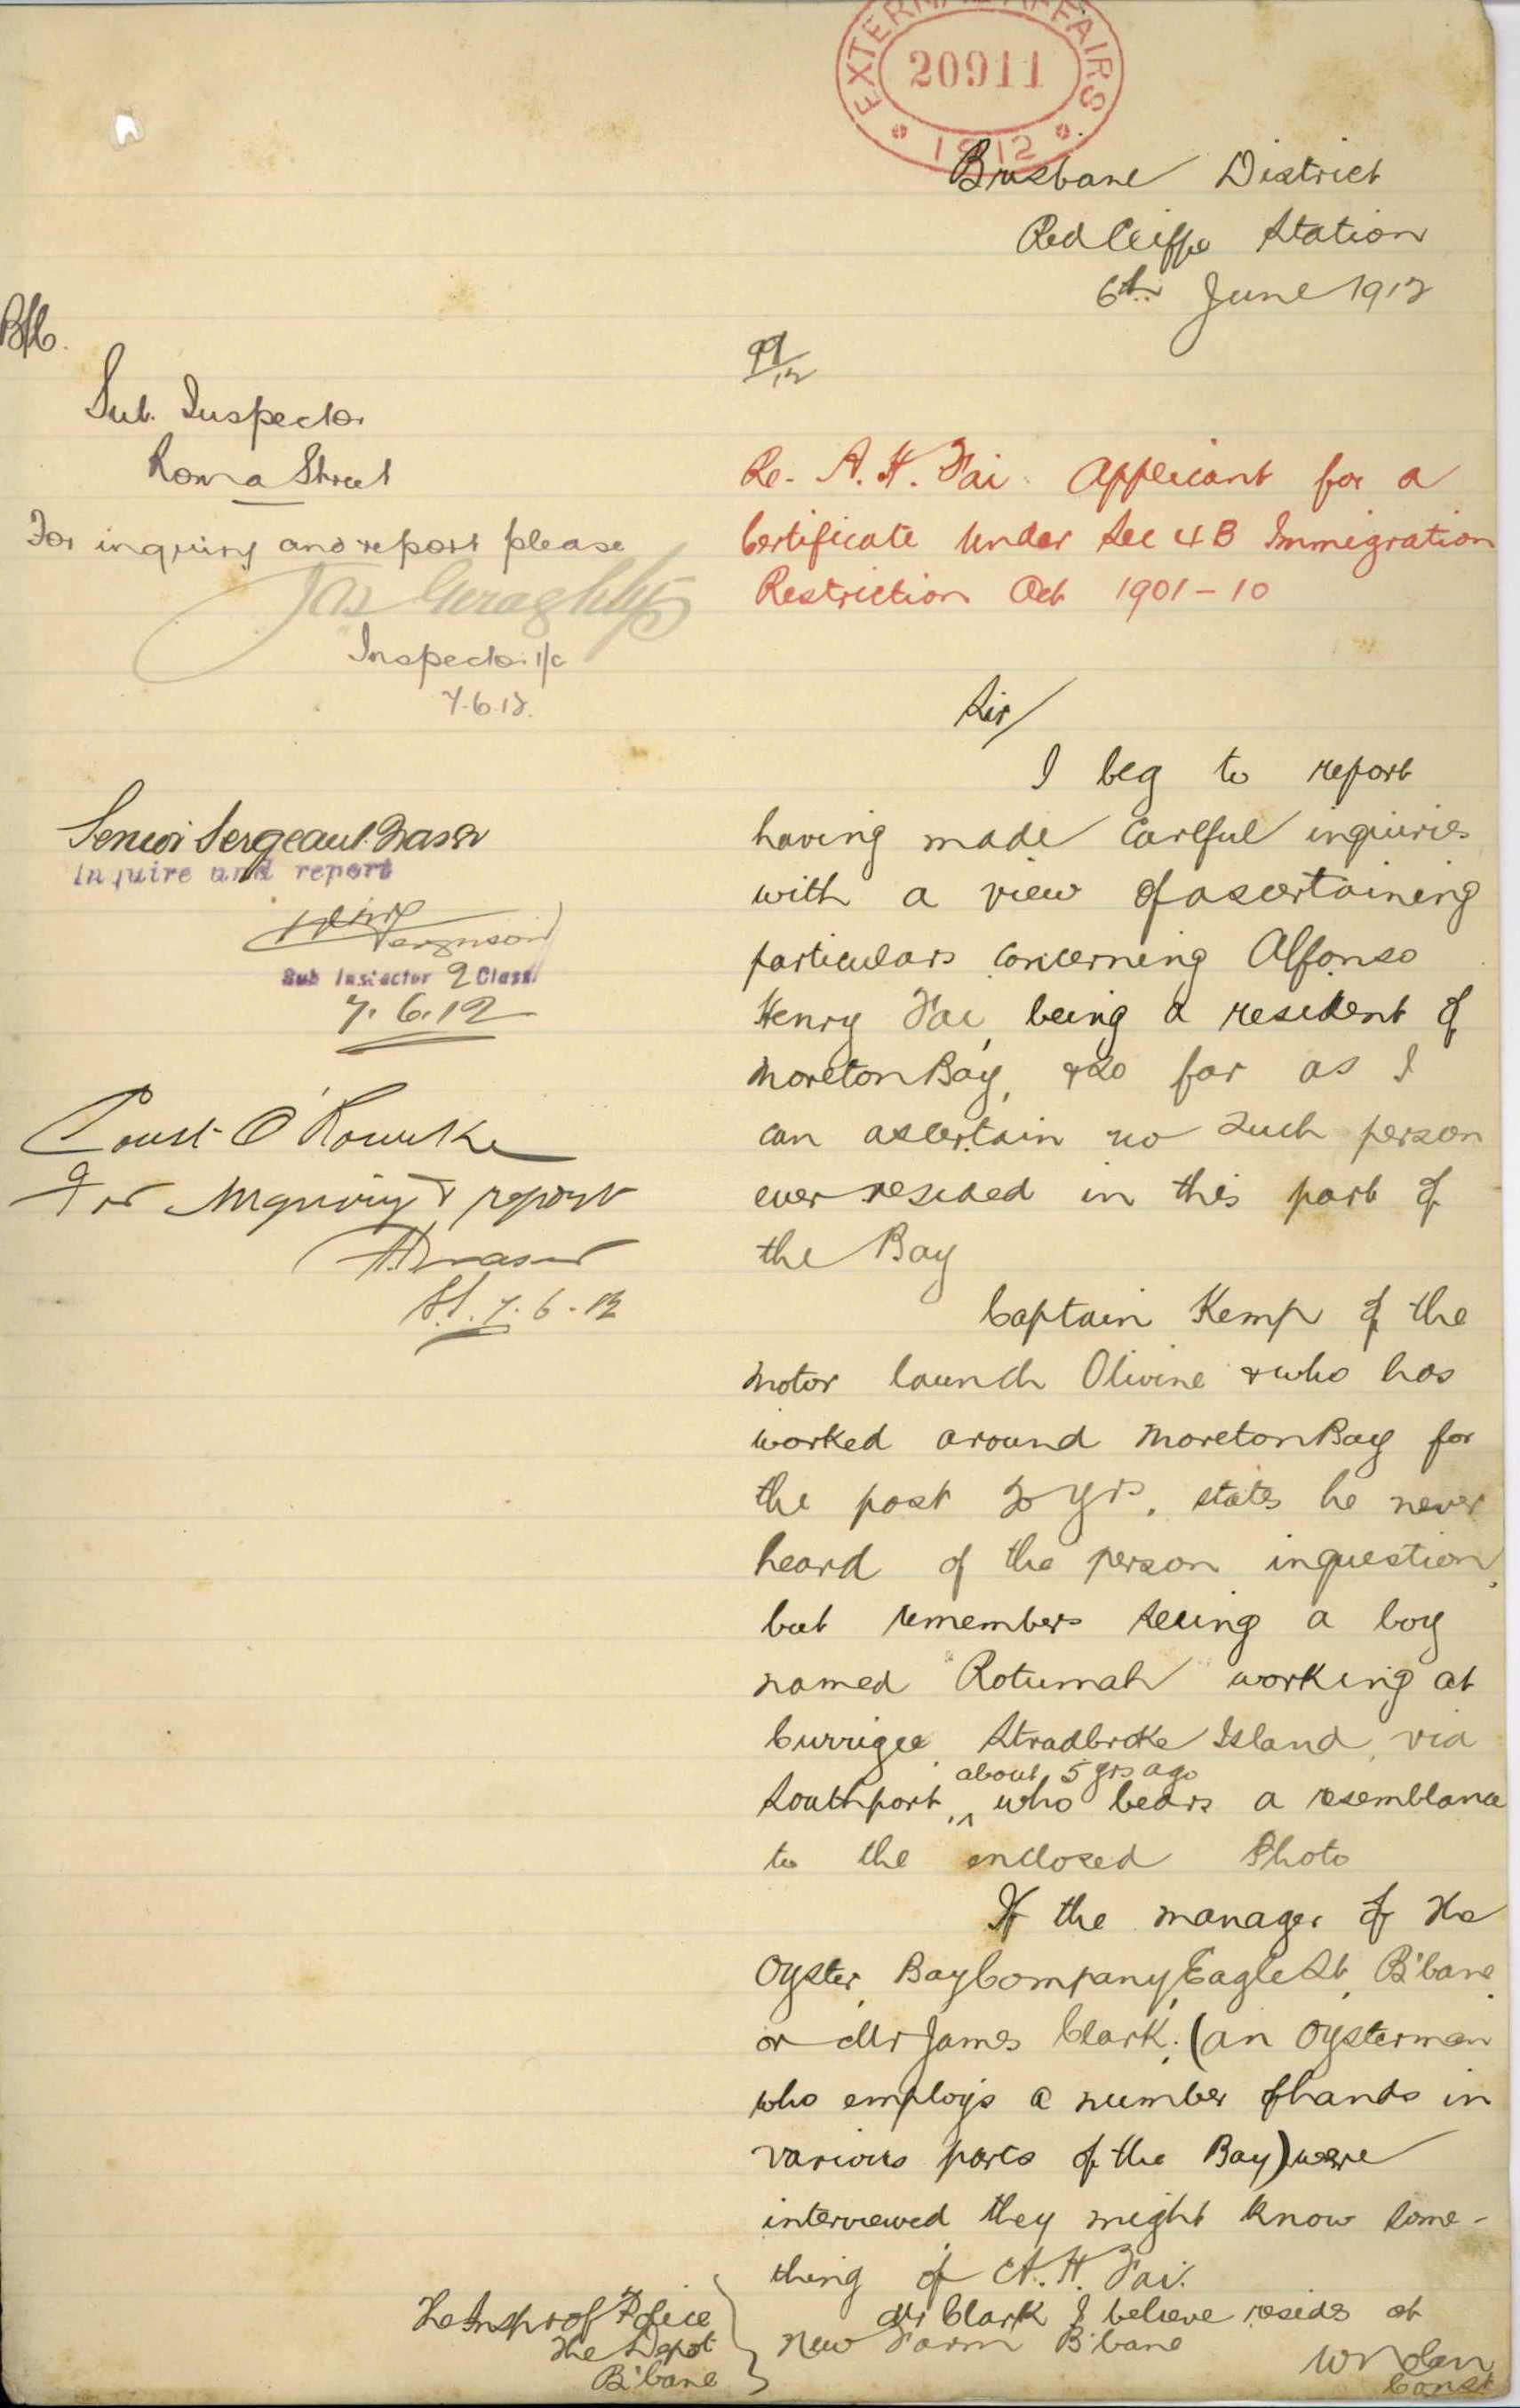 EXTERNAL AFFAIRS
20911
1912
Brisbane District
Redcliffe Station
6th June 1912
99/12
Re. A. H. Fai Applicant for a
Certificate Under Sec 4B Immigration
Restriction Act 1901-10
Sir/
I beg to report
having made Careful inquiries
with a view of ascertaining
particulars concerning Alfonso
Henry Fai, being a resident of
Moreton Bay, & so far as I
can ascertain no such person
ever resided in this part of
the Bay
Captain Kemp of the
Motor launch Olivine & who has
worked around Moreton Bay for
the past 20 yrs, states he never
heard of the person in question,
but remembers seeing a boy
named "Rotumah" working at
Currigee, Stradbroke Island, via
about 5 yrs ago
Southport, ^ who bears a resemblance
to the enclosed Photo
If the manager of the
Oyster Bay Company, Eagle St, B'bane
or Mr James Clark, (an Oysterman
who employs a number of hands in
various parts of the Bay) were
interviewed they might know some-
thing of A. H. Fai.
Mr Clark I believe resides at
New Farm B'bane
Const
Sub. Inspector
Roma Street
For inquiry and report please
Jas Geraghty
Inspector i/c
7.6.12.
Senior Sergeant Fraser
Inquire and report
Ferguson
Sub Inspector 2 Class
7.6.12
Const O'Rourke
For Inquiry & report
Fraser
SS. 7.6.12
The Inspr of Police
The Depot
B'bane